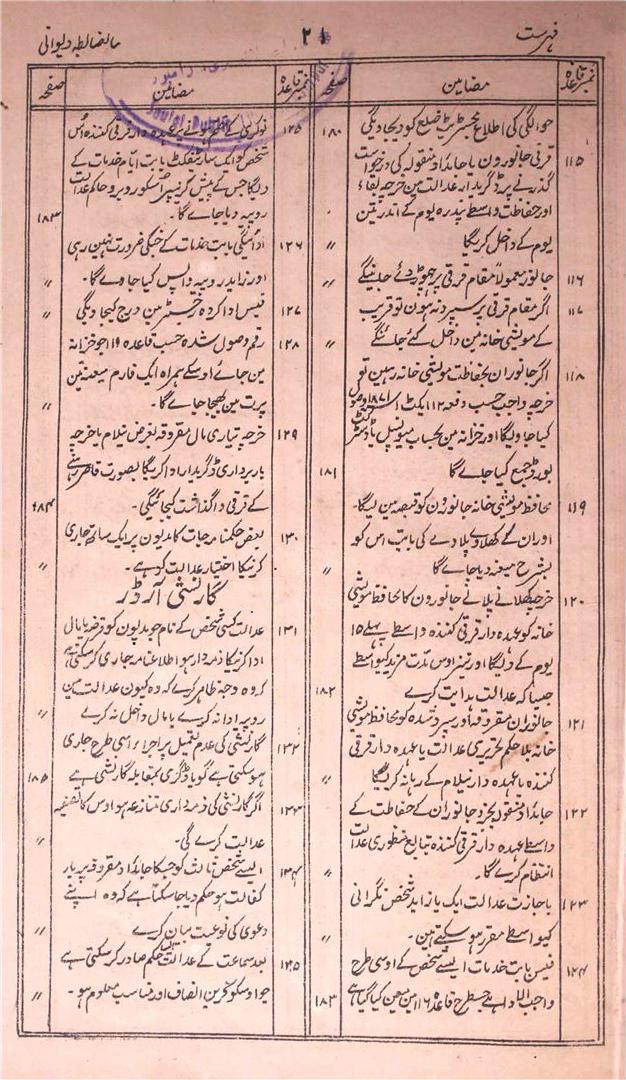 فہرست
۲۱
مالضابطہ دیوانی
نمبر قاعدہ
مضامین
صفحہ
حوالگی کی اطلاع مجسٹریٹ ضلع کو دیجاویگی ۱۸۰
۱۱۵ قرقی جانورون یا جایداد منقولہ کی درخواست
گذرنے پر ڈگریدار عدالت مین خرچہ بقاء
اور حفاظت واسطے پندرہ یوم کے اندر تین
یوم کے داخل کریگا 〃
۱۱۶ جانور معمولاً مقام قرقی پر چھوڑ دئے جائینگے 〃
۱۱۷ اگر مقام قرقی پر سپرد نہ ہون تو قریب
کے مویشی خانہ مین داخل کئے جائنگے 〃
۱۱۸ اگر جانوران بحفاظت مویشی خانہ رہین تو
خرچہ واجب حسب دفعہ ۱۲ ایکٹ ۱ ۱۸۷۱ وصول
کیا جاویگا اور خزانہ مین بحساب میونسپل یا ڈسٹرکٹ
بورڈ جمع کیا جاے گا ۱۸۱
۱۱۹ محافظ مویشی خانہ جانورون کو قبضہ مین لیگا۔
اور ان کے کھلاوے پلاوے کی بابت اس کو
بشرح معینہ دیا جاے گا 〃
۱۲۰ خرچہ کھلانے پلانے جانورون کا محافظ مویشی
خانہ کو عہدہ دار قرقی کنندہ واسطے پہلے ۱۵
یوم کے دیگا اور نیز اوس مدت مزید کیواسطے
جیسا کہ عدالت ہدایت کرے ۱۸۲
۱۲۱ جانوران مقروقہ اور سپرد شدہ کو محافظ مویشی
خانہ بلا حکم تحریری عدالت یا عہدہ دار قرقی
کنندہ یا عہدہ دار نیلام کے رہا نہ کریگا 〃
۱۲۲ جایداد منقولہ بجز جانوران کے حفاظت کے
واسطے عہدہ دار قرقی کنندہ تبابع منظوری عدالت
انتظام کرے گا۔ 〃
۱۲۳ باجازت عدالت ایک یا زاید شخص نگرانی
کیواسطے مقرر ہو سکتے ہین۔ 〃
۱۲۴ فیس بابت خدمات ایسے شخص کے اوسی طرح
واجب الادا ہے جسطرح قاعدہ ۱۶ مین معین کیا گیا ہے ۱۸۳
نمبر قاعدہ
مضامین
صفحہ
۱۲۵ نوکری کے ختم ہونے پر عہدہ دار قرقی کنندہ اُس
شخص کو ایک سارٹیفکٹ بابت ایام خدمات کے
دیگا جس کے پیش کرنیپر اُسکو روبرو حاکم عدالت
روپیہ دیا جاے گا۔ ۱۸۳
۱۲۶ ادائگی بابت خدمات کے جنکی ضرورت نہین رہی
اور زاید روپیہ واپس کیا جاوے گا۔ 〃
۱۲۷ فیس ادا کردہ رجسٹر مین درج کیجاویگی 〃
۱۲۸ رقم وصول شدہ حسب قاعدہ ۱۱۹ جو خزانہ
مین جائے اوسکے ہمراہ ایک فارم معینہ تین
پرت مین بھیجا جاے گا۔ 〃
۱۲۹ خرچہ تیاری مال مقروقہ بغرض نیلام یا خرچہ
باربرداری ڈگریدار ادا کریگا بصورت قاصر رہنے
کے قرقی واگذاشت کیجائیگی۔ ۱۸۴
۱۳۰ بعض حکمنامہ جات کا مدیون پر ایک ساتھ جاری
کرنیکا اختیار عدالت کو ہے۔ 〃
گارنشی آرڈر
۱۳۱ عدالت کسی شخص کے نام جو مدیون کو قرضہ یا مال
ادا کرنیکا ذمہ دار ہو اطلاعنامہ جاری کر سکتی ہے
کہ وہ وجہ ظاہر کرے کہ وہ کیون عدالت مین
روپیہ ادا نہ کرے یا مال داخل نہ کرے 〃
۱۳۲ گارنشی کی عدم تعمیل پر اجرا اسی طرح جاری
ہو سکتی ہے گویا ڈگری بمقابلہ گارنشی ہے ۱۸۵
۱۳۳ اگر گارنشی کی ذمہ داری متنازعہ ہو اوس کا تصفیہ
عدالت کرے گی۔ 〃
۱۳۴ ایسے شخص ثالث کو جسکا جایداد مقروقہ پر بار
کفالت ہو حکم دیا جا سکتا ہے کہ وہ اپنے
دعویٰ کی نوعیت بیان کرے 〃
۱۳۵ بعد سماعت کے عدالت ایسا حکم صادر کر سکتی ہے
جو اوسکو قرین انصاف اور مناسب معلوم ہو۔ 〃